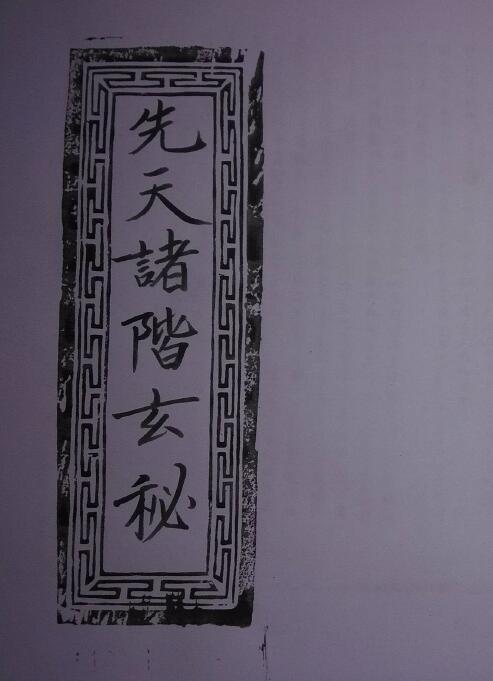 先天諸階玄祕